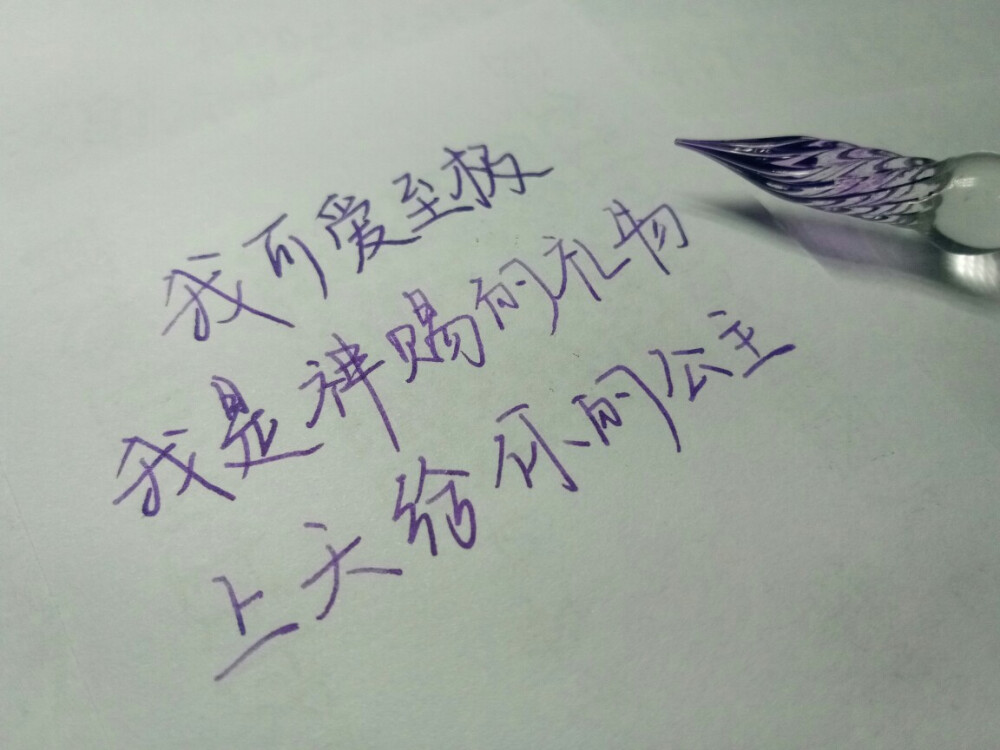 我可爱至极
我是神赐的礼物
上天给你的公主